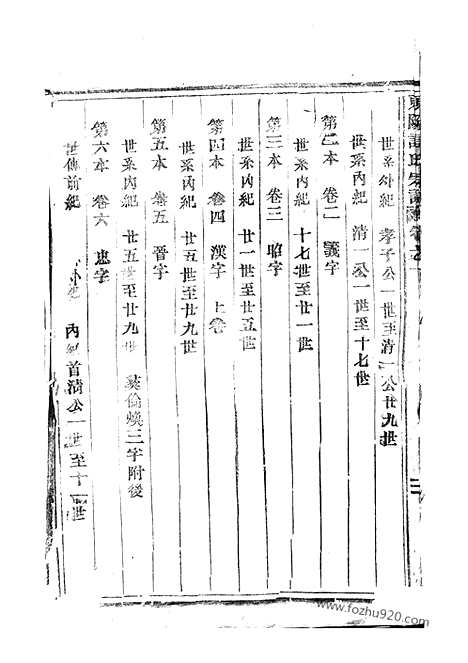 世系外紀 孝子公一世至清一公廿九世
世系內紀 清一公一世至十七世
第二本 卷二 義字
世系內紀 十七世至廿一世
第三本 卷三 昭字
世系內紀 廿一世至廿五世
第四本 卷四 漢字 上卷
世系內紀 廿五世至廿九世
第五本 卷五 晉字
世系內紀 廿五世至廿九世 倫煥三字附後
第六本 卷六 忠字
世傳前紀 內紀首清公一世至十一世
www.fozhu920.com